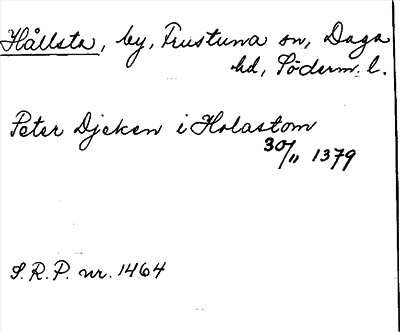 Hållsta, by, Frustuna sn, Daga
hd, Söderm. l.
Peter Djeken i Holastom
30/11 1379
S.R.P. nr. 1464